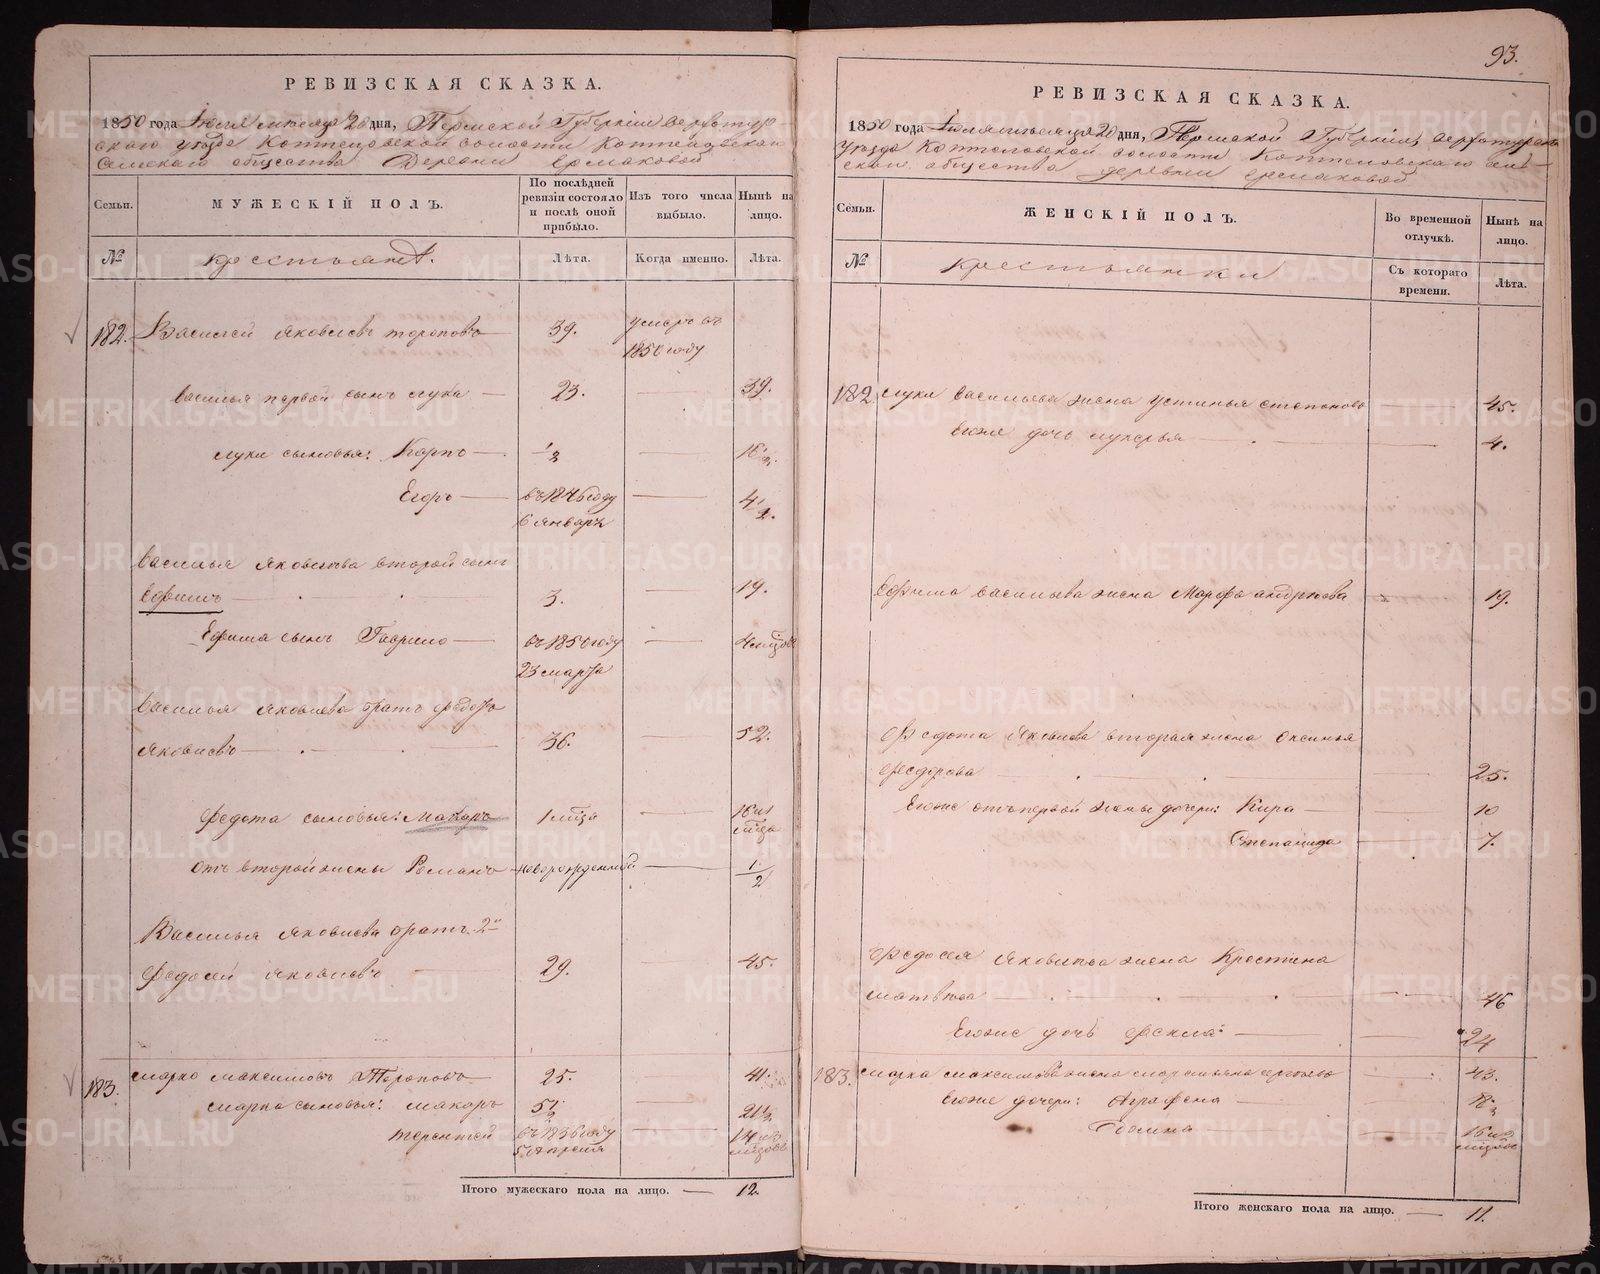 РЕВИЗСКАЯ СКАЗКА.
1850 года Іюля мѣсяца 20 дня, Пермской Губерніи Верхотур-
скаго уѣзда Коптеловской волости Коптеловскаго
сельскаго общества Деревни Ермаковой
Семьи.
МУЖЕСКІЙ ПОЛЪ.
По послѣдней ревизіи состояло и послѣ оной прибыло.
Изъ того числа выбыло.
Нынѣ на лицо.
№
Крестьяне.
Лѣта.
Когда именно.
Лѣта.
182. Василей Яковлевъ Тороповъ 39. умеръ въ
1850 году
Василья первой сынъ Лука 23. 39.
Луки сыновья: Карпъ 1/2 16 1/2.
Егоръ въ 1846 году 4 1/2.
6 Января
Василья Яковлева второй сынъ
Ефимъ 3. 19.
Ефима сынъ Гаврило въ 1850 году
23 марта
Василья Яковлева братъ Федотъ
Яковлевъ 36. 52.
Федота сыновья: Макаръ
отъ второй жены Романъ новорожденный 1/2
Василья Яковлева братъ 2й
Федосей Яковлевъ 29. 45.
183. Марко Максимовъ Тороповъ 25. 41.
Марка сыновья: Макаръ 5 1/2 21 1/2
Терентей въ 1836 году
5 Апреля
Итого мужескаго пола на лицо. — 12.
93.
РЕВИЗСКАЯ СКАЗКА.
1850 года Іюля мѣсяца 20 дня, Пермской Губерніи Верхотурскаго
уѣзда Коптеловской волости Коптеловскаго сель-
скаго общества деревни Ермаковой
Семьи.
ЖЕНСКІЙ ПОЛЪ.
Во временной отлучкѣ.
Нынѣ на лицо.
№
Крестьянки
Съ котораго времени.
Лѣта.
182. Луки Васильева жена Устинья Степанова 45.
Его же дочь Лукерья 4.
Ефима Васильева жена Марфа Андреева 19.
Федота Яковлева вторая жена Оксинья
Федорова 25.
Его же отъ первой жены дочери: Кира 10
Степанида 7.
Федосея Яковлева жена Крестина
Матвѣева 46
Его же дочь Фекла 24
183. Марка Максимова жена 43.
Его же дочери: Аграфена
Итого женскаго пола на лицо. — 11.
METRIKI.GASO-URAL.RU